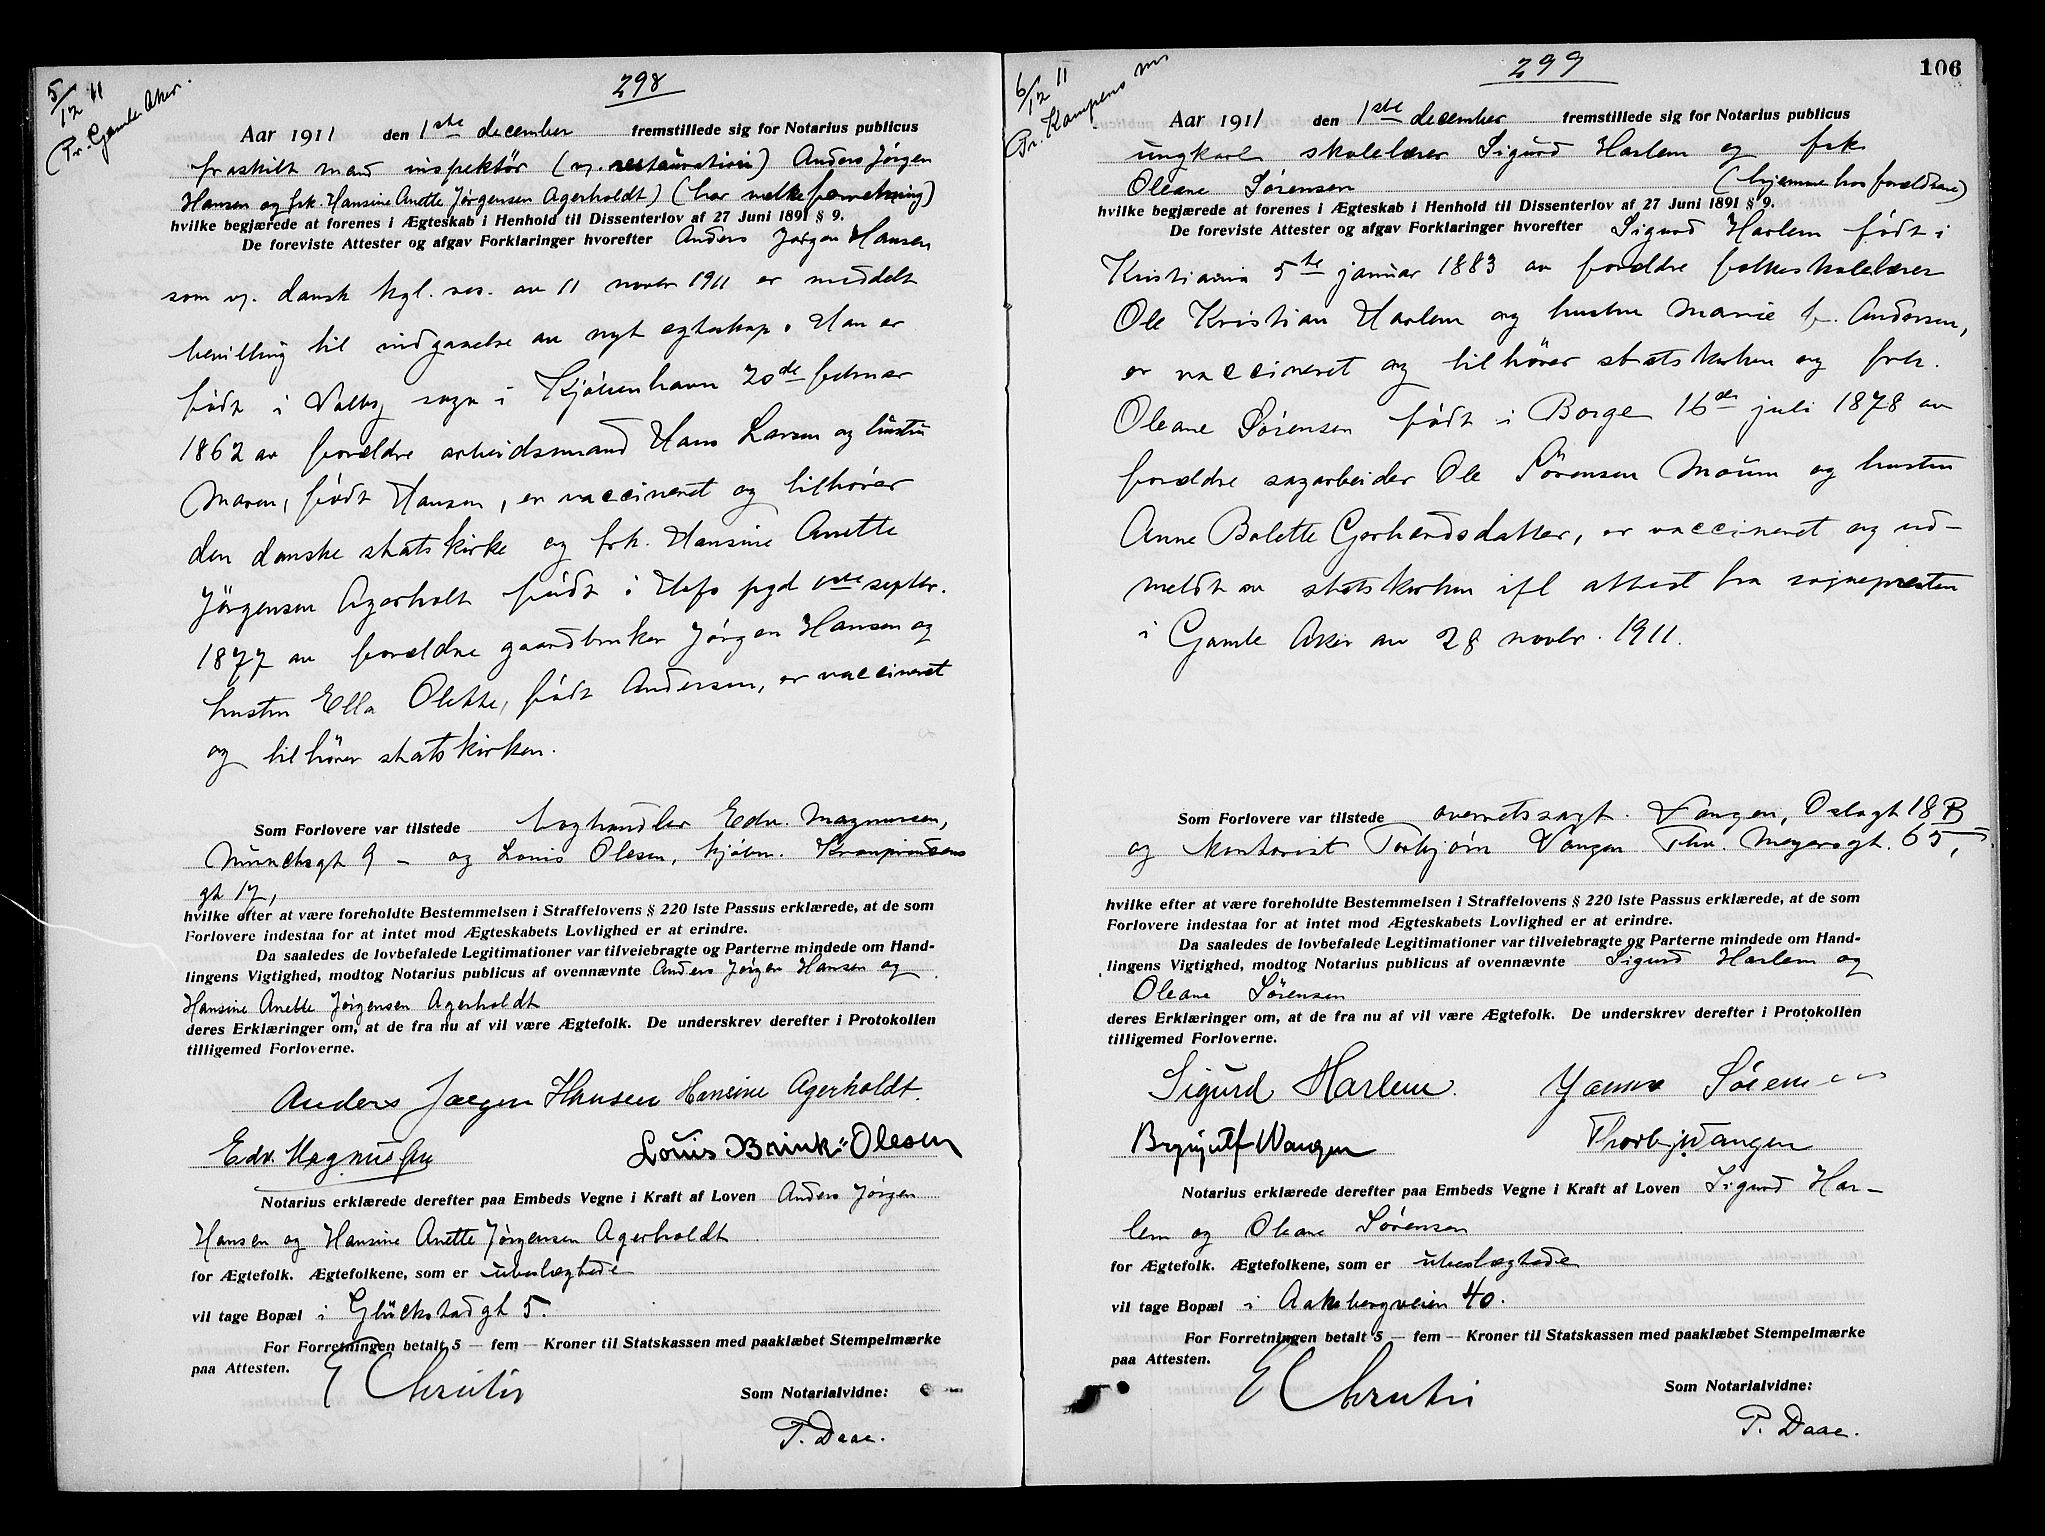 5/12 11
Pr. Gamle Aker.
298
Aar 1911 den 1ste december fremstillede sig for Notarius publicus
fraskilt mand inspektör (v. restauration) Anders Jörgen
Hansen og frk. Hansine Anette Jörgensen Agerholdt) (har melkeforretning)
hvilke begjærede at forenes i Ægteskab i Henhold til Dissenterlov af 27 Juni 1891 § 9.
De foreviste Attester og afgav Forklaringer hvorefter Anders Jörgen Hansen
som v. dansk kgl. res. av 11 novbr 1911 er meddelt
bevilling til indgaaelse av nyt egteskap. Han er
födt i Valby sogn i Kjöbenhavn 20de februar
1862 av forældre arbeidsmand Hans Larsen og hustru
Maren, födt Hansen, er vaccineret og tilhörer
den danske statskirke og frk. Hansine Anette
Jörgensen Agerholt födt i pgd septbr.
1877 av forældre gaardbruker Jörgen Hansen og
hustru Ella Olette, födt Andersen, er vaccineret
og tilhörer statskirken.
Som Forlovere var tilstede boghandler Edv. Magnussen,
Munchsgt 9 – og Louis Olesen, kjöbm. Kronprindsens
gt 17,
hvilke efter at være foreholdte Bestemmelsen i Straffelovens § 220 1ste Passus erklærede, at de som
Forlovere indestaa for at intet mod Ægteskabets Lovlighed er at erindre.
Da saaledes de lovbefalede Legitimationer var tilveiebragte og Parterne mindede om Hand-
lingens Vigtighed, modtog Notarius publicus af ovennævnte Anders Jörgen Hansen og
Hansine Anette Jörgensen Agerholdt
deres Erklæringer om, at de fra nu af vil være Ægtefolk. De underskrev derefter i Protokollen
tilligemed Forloverne.
Anders Jørgen Hansen Hansine Agerholdt.
Edv. Magnussen Louis Brink-Olesen
Notarius erklærede derefter paa Embeds Vegne i Kraft af Loven Anders Jörgen
Hansen og Hansine Anette Jörgensen Agerholdt
for Ægtefolk. Ægtefolkene, som er ubeslægtede
vil tage Bopæl i Glückstadgt 5.
For Forretningen betalt 5 – fem – Kroner til Statskassen med paaklæbet Stempelmærke
paa Attesten.
E Christie
Som Notarialvidne:
P. Daae.
6/12 11
Pr. Kampens
299
106
Aar 1911 den 1ste december fremstillede sig for Notarius publicus
ungkarl skolelærer Sigurd Harlem og frk
Oleane Sörensen (hjemme hos forældrene)
hvilke begjærede at forenes i Ægteskab i Henhold til Dissenterlov af 27 Juni 1891 § 9.
De foreviste Attester og afgav Forklaringer hvorefter Sigurd Harlem födt i
Kristiania 5te januar 1883 av forældre folkeskolelærer
Ole Kristian Harlem og hustru Marie f. Andersen,
er vaccineret og tilhörer statskirken og frk.
Oleane Sörensen födt i Borge 16de juli 1878 av
forældre sagarbeider Ole Sörensen Moum og hustru
Anne Bolette Gerhardsdatter, er vaccineret og ud-
meldt av statskirken ifl attest fra sognepresten
i Gamle Aker av 28 novbr. 1911.
Som Forlovere var tilstede overretssagf. Vangen, Oslogt 18 B
og kontorist Torbjörn Vangen Thv. Meyersgt. 65,
hvilke efter at være foreholdte Bestemmelsen i Straffelovens § 220 1ste Passus erklærede, at de som
Forlovere indestaa for at intet mod Ægteskabets Lovlighed er at erindre.
Da saaledes de lovbefalede Legitimationer var tilveiebragte og Parterne mindede om Hand-
lingens Vigtighed, modtog Notarius publicus af ovennævnte Sigurd Harlem og
Oleane Sörensen
deres Erklæringer om, at de fra nu af vil være Ægtefolk. De underskrev derefter i Protokollen
tilligemed Forloverne.
Sigurd Harlem. Sörensen
Brynjulf Wangen Thorbj. Wangen
Notarius erklærede derefter paa Embeds Vegne i Kraft af Loven Sigurd Har-
lem og Oleane Sörensen
for Ægtefolk. Ægtefolkene, som er ubeslægtede
vil tage Bopæl i Aakebergveien 40.
For Forretningen betalt 5 – fem – Kroner til Statskassen med paaklæbet Stempelmærke
paa Attesten.
E Christie
Som Notarialvidne:
P. Daae.